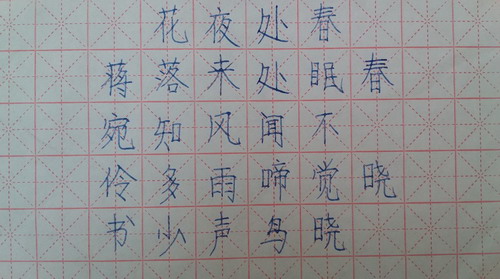 春晓
春眠不觉晓
处处闻啼鸟
夜来风雨声
花落知多少
蒋宛伶书